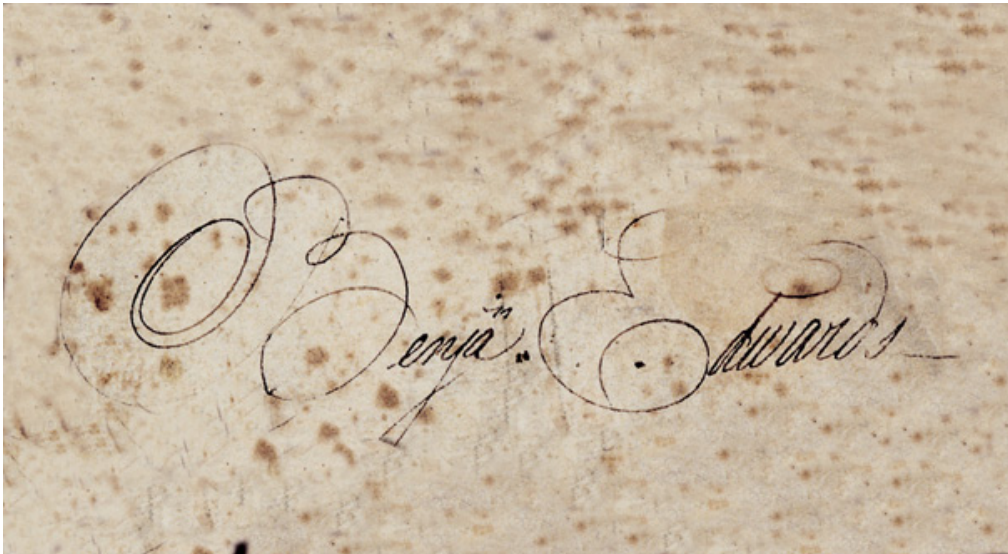 Benjaⁿ. Edwards